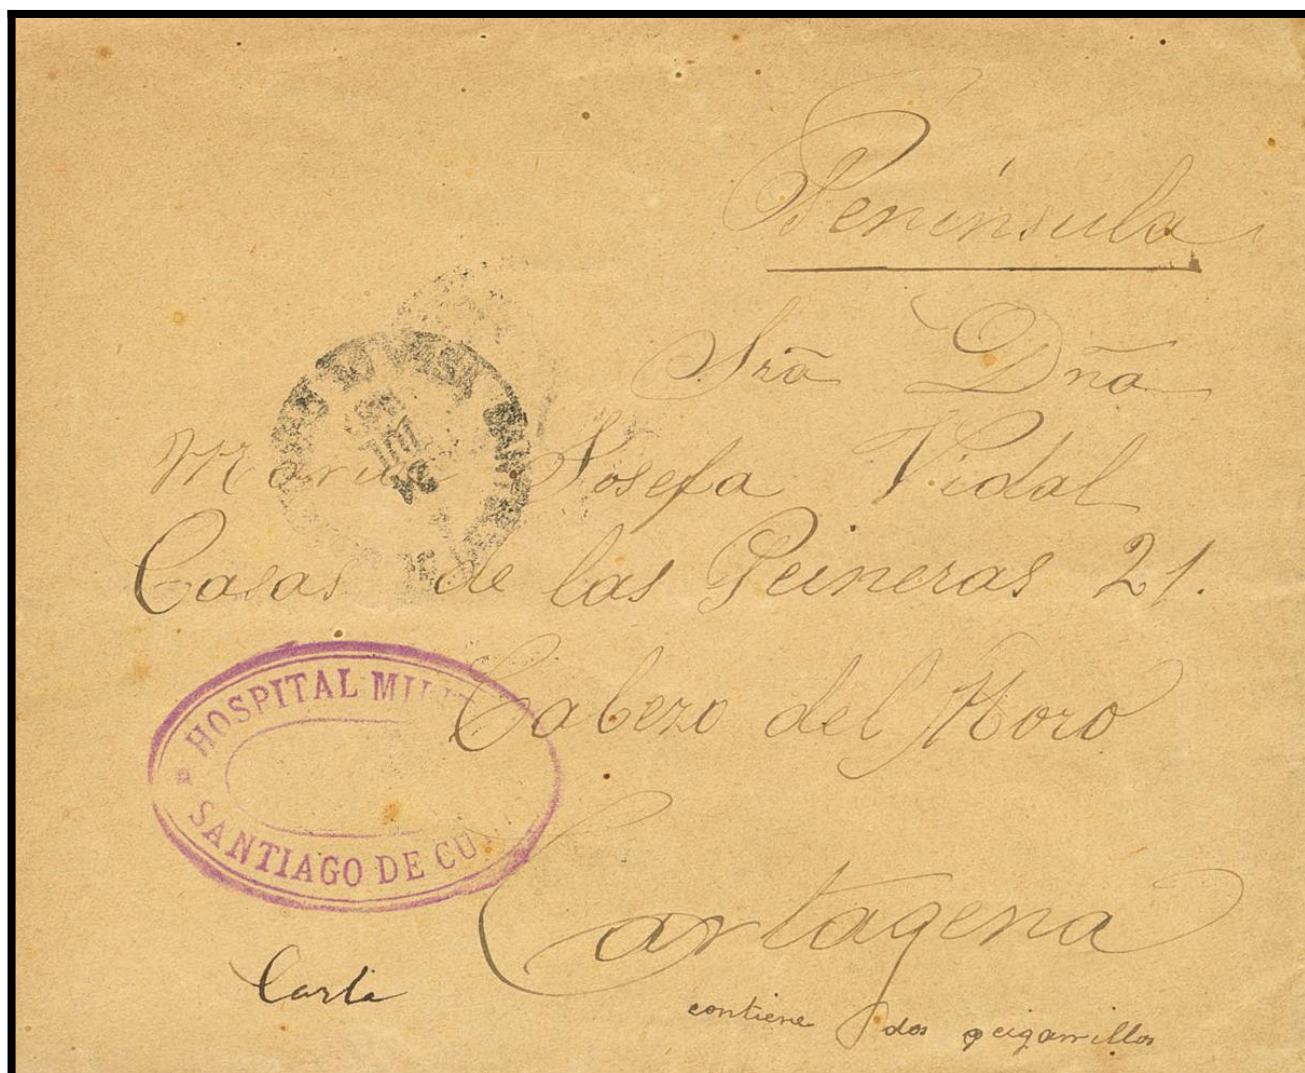 Península
Sra Dña
Maria Josefa Vidal
Casas de las Peineras 21.
Cabezo del Moro
HOSPITAL MILI
SANTIAGO DE CU
Cartagena
Carta
contiene dos cigarrillos